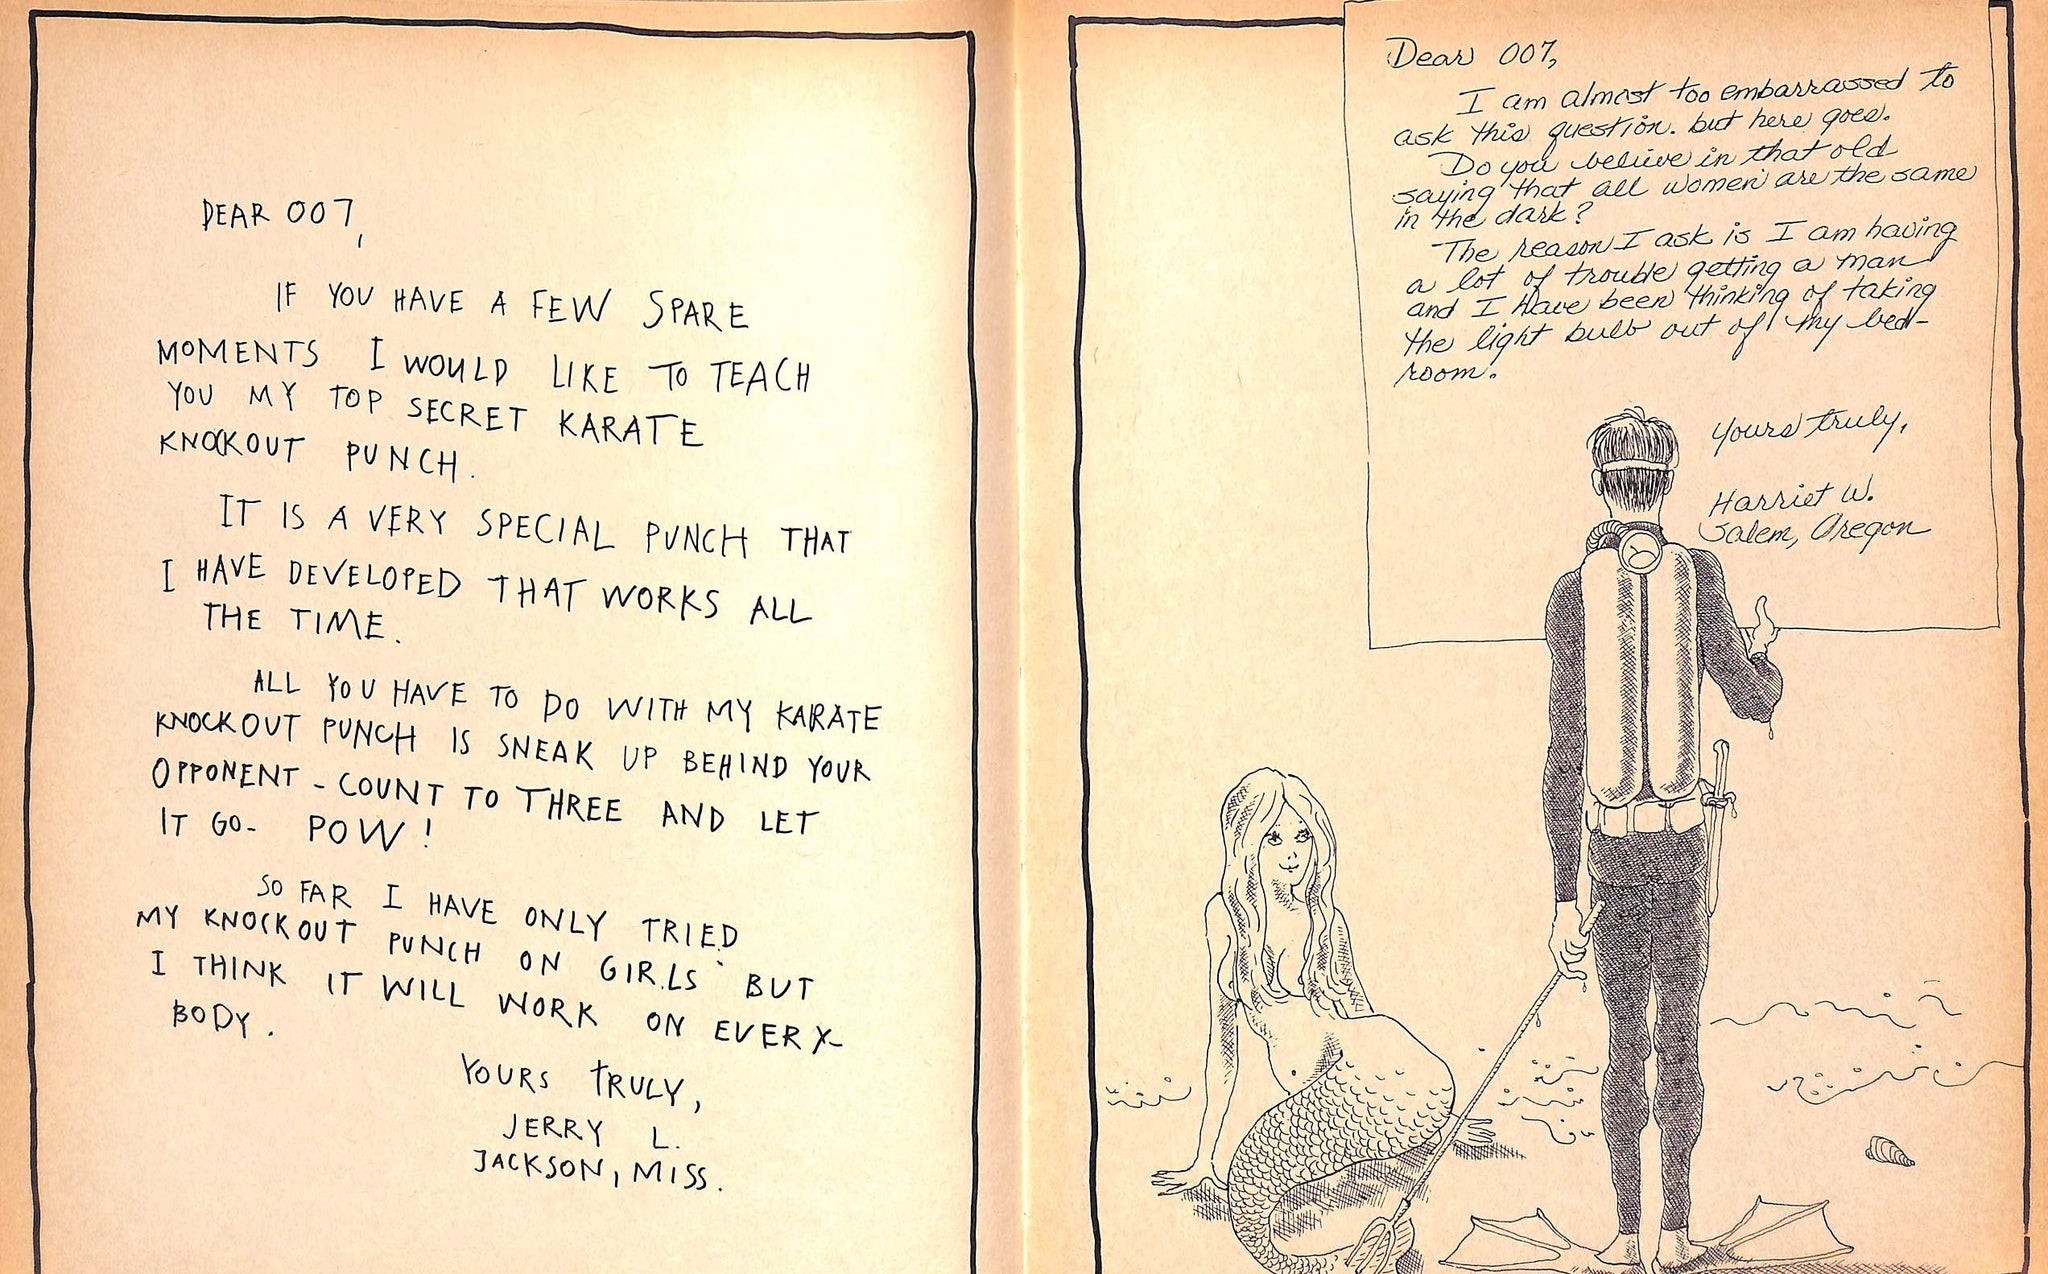 DEAR 007,
IF YOU HAVE A FEW SPARE
MOMENTS I WOULD LIKE TO TEACH
YOU MY TOP SECRET KARATE
KNOCKOUT PUNCH.
IT IS A VERY SPECIAL PUNCH THAT
I HAVE DEVELOPED THAT WORKS ALL
THE TIME.
ALL YOU HAVE TO DO WITH MY KARATE
KNOCKOUT PUNCH IS SNEAK UP BEHIND YOUR
OPPONENT - COUNT TO THREE AND LET
IT GO- POW!
SO FAR I HAVE ONLY TRIED
MY KNOCKOUT PUNCH ON GIRLS BUT
I THINK IT WILL WORK ON EVERY-
BODY.
YOURS TRULY,
JERRY L.
JACKSON, MISS.
Dear 007,
I am almost too embarrassed to
ask this question. but here goes.
Do you believe in that old
saying that all women are the same
in the dark?
The reason I ask is I am having
a lot of trouble getting a man
and I have been thinking of taking
the light bulb out of my bed-
room.
Yours truly,
Harriet W.
Salem, Oregon